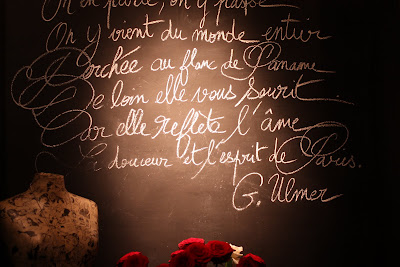 On en parle, on y passe
On y vient du monde entier
Perchée au flanc de Paname
De loin elle vous sourit...
Car elle reflète l'âme
La douceur et l'esprit de Paris.
G. Ulmer